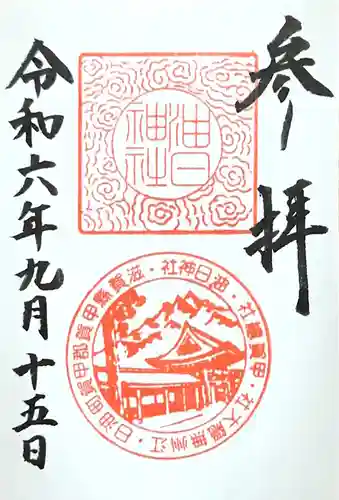 参拝
油日
神社
油日神社・滋賀縣甲賀郡甲賀町油日・江州無
大
社・甲賀
令和六年九月十五日